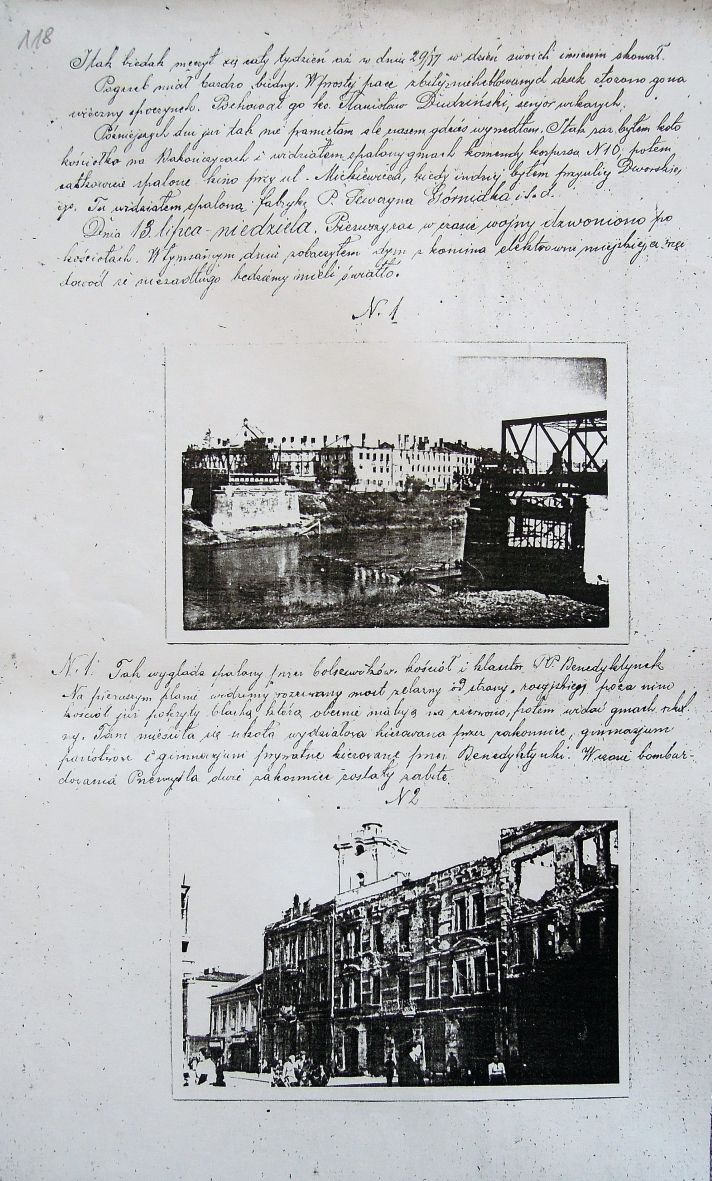 118
I tak biedak męczył się cały tydzień aż w dniu 29/VI w dzień swoich imienin skonał.
Pogrzeb miał bardzo biedny. W prostej pace zbitej z nieheblowanych desek złożono go na
wieczny spoczynek. Pochował go ks. Stanisław Dudziński, senjor wikarych.
Późniejszych dni już tak nie pamiętam ale czasem gdzieś wyszedłem. I tak raz byłem koło
kościółka na Bakończycach i widziałem spalony gmach komendy korpusu N 10. potem
całkowicie spalone kino przy ul. Mickiewicza, kiedy indziej byłem przy ulicy Dworskie
go. Tu widziałem spaloną fabrykę P. Górniaka i t. d.
Dnia 13. lipca - niedziela. Pierwszy raz w czasie wojny dzwoniono po
kościołach. W tym samym dniu zobaczyłem dym z komina elektrowni miejskiej, a więc
dowód że niezadługo będziemy mieli światło.
N. 1
N. 1. Tak wygląda spalony przez bolszewików kościół i klasztor PP. Benedyktynek
Na pierwszym planie widzimy rozerwany most żelazny od strony rosyjskiej poza nim
kościół już pokryty blachą którą obecnie malują na czerwono, potem widać gmach szkol
ny. Tam mieściła się szkoła wydziałowa kierowana przez zakonnice, gimnazjum
państwowe i gimnazjum prywatne kierowane przez Benedyktynki. W czasie bombar-
dowania Przemyśla dwie zakonnice zostały zabite.
N 2